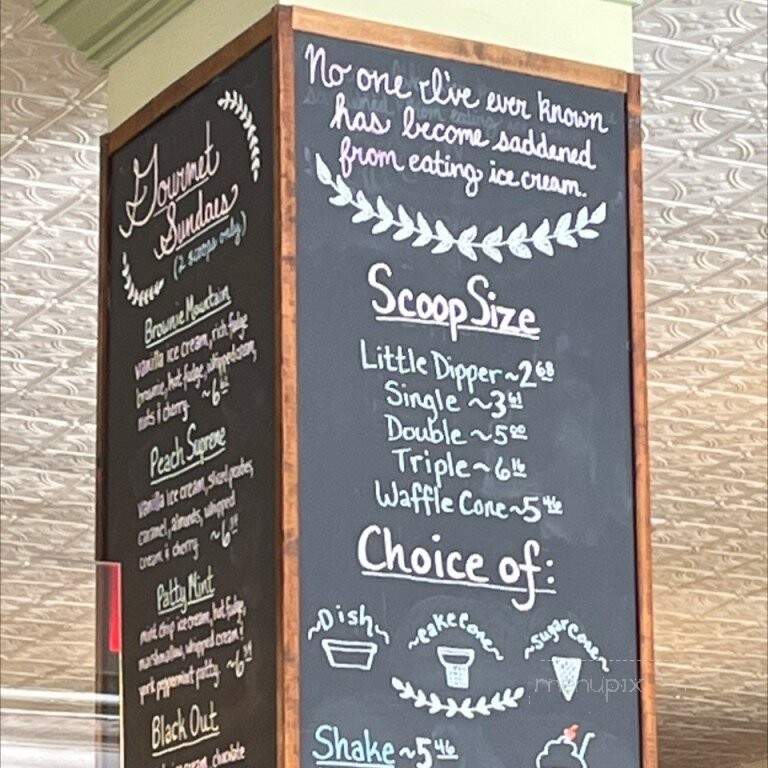 Gourmet
Sundaes
(2 scoops only)
Brownie Mountain
vanilla ice cream, rich fudge
brownie, hot fudge, whipped cream,
nuts & cherry ~6
Peach Supreme
vanilla ice cream, sliced peaches,
caramel, almonds, whipped
cream & cherry ~6
Patty Mint
mint chip ice cream, hot fudge,
marshmallow, whipped cream &
york peppermint patty. ~6
Black Out
ice cream, chocolate
No one I've ever known
has become saddened
from eating ice cream.
Scoop Size
Little Dipper ~ 2 68
Single ~ 3 61
Double ~ 5 00
Triple ~ 6 16
Waffle Cone ~ 5 46
Choice of:
~Dish~
~cake cone~
~sugar cone~
menupix
Shake ~ 5 46